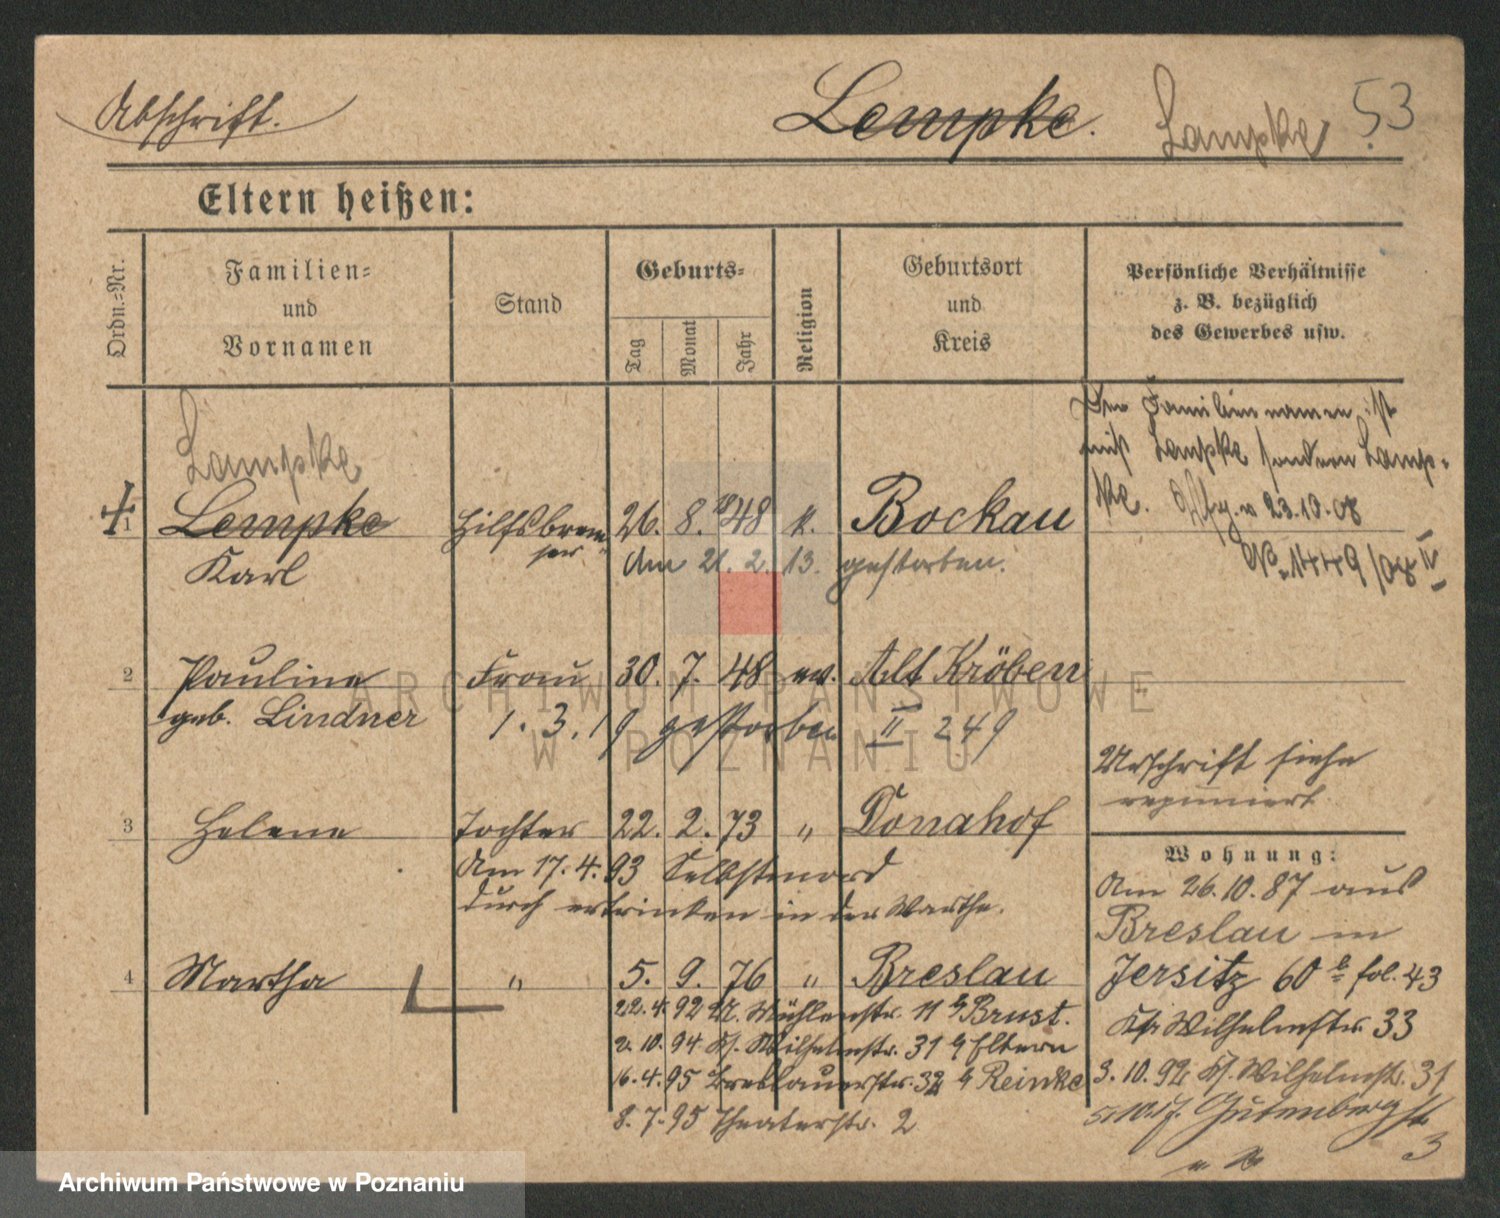 Abschrift.
Lempke. Lampke 53
Eltern heißen:
Ordn.-Nr.
Familien-
und
Vornamen
Stand
Geburts-
Tag
Monat
Jahr
Religion
Geburtsort
und
Kreis
Persönliche Verhältnisse
z. B. bezüglich
des Gewerbes usw.
Der Familiennamen ist
nicht Lempke sondern Lamp-
ke. 23.10.08
No. 1449/08 II
Lampke
1 Lempke Hilfsbrem- 26. 8. 48 k. Bockau
ser
Karl am 21. 2. 13. gestorben.
2 Pauline Frau 30. 7. 48 ev. Alt Kröben
geb. Lindner 1. 3. 19 gestorben II 249
Urschrift siehe
3 Helene Tochter 22. 2. 73 " Donahof
Am 17. 4. 93 Selbstmord
durch ertrinken in der Warthe.
4 Martha " 5. 9. 76 " Breslau
22. 4. 92 Mühlenstr. 11 b Brust.
2. 10. 94 Wilhelmstr. 31 Eltern
16. 4. 95 Breslauerstr. 32 Reinke
8. 7. 95 Theaterstr. 2
Wohnung:
Am 26. 10. 87 aus
Breslau in
Jersitz 60 b fol. 43
Wilhelmstr. 33
3. 10. 92 Wilhelmstr. 31
Gutenbergstr.
3
ARCHIWUM PAŃSTWOWE
W POZNANIU
Archiwum Państwowe w Poznaniu